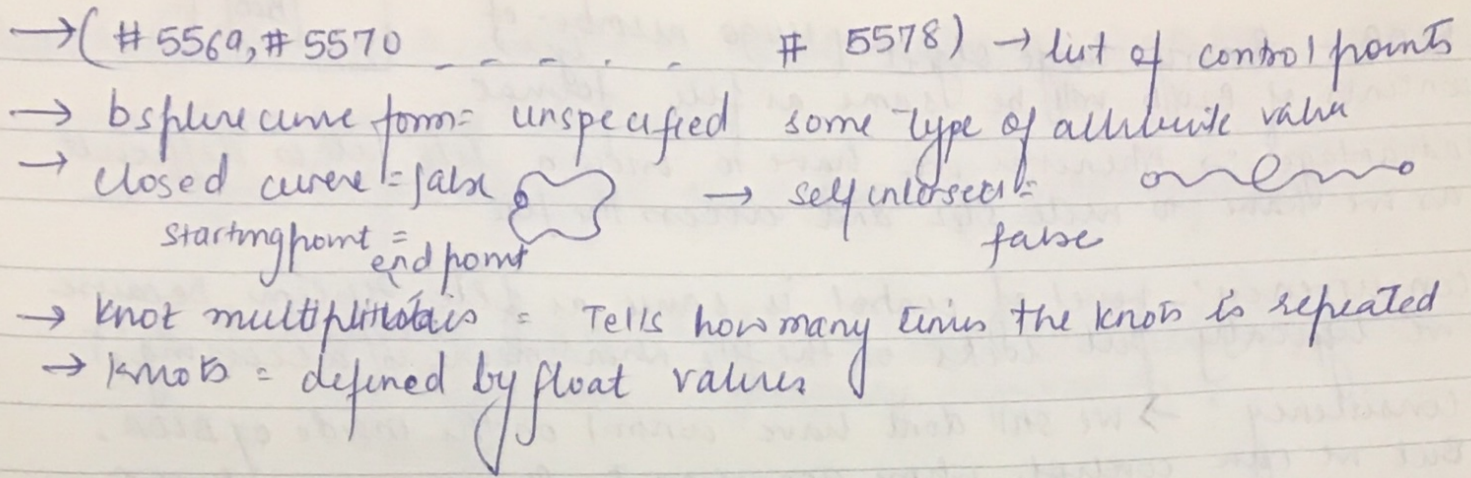 → (#5569, #5570 _ _ _ . . #5578) → list of control points
→ bspline curve form = unspecified some type of attribute value
→ closed curve = false → self intersect =
starting point = false
end point
→ Knot multiplicities = Tells how many times the knots is repeated
→ Knots = defined by float values